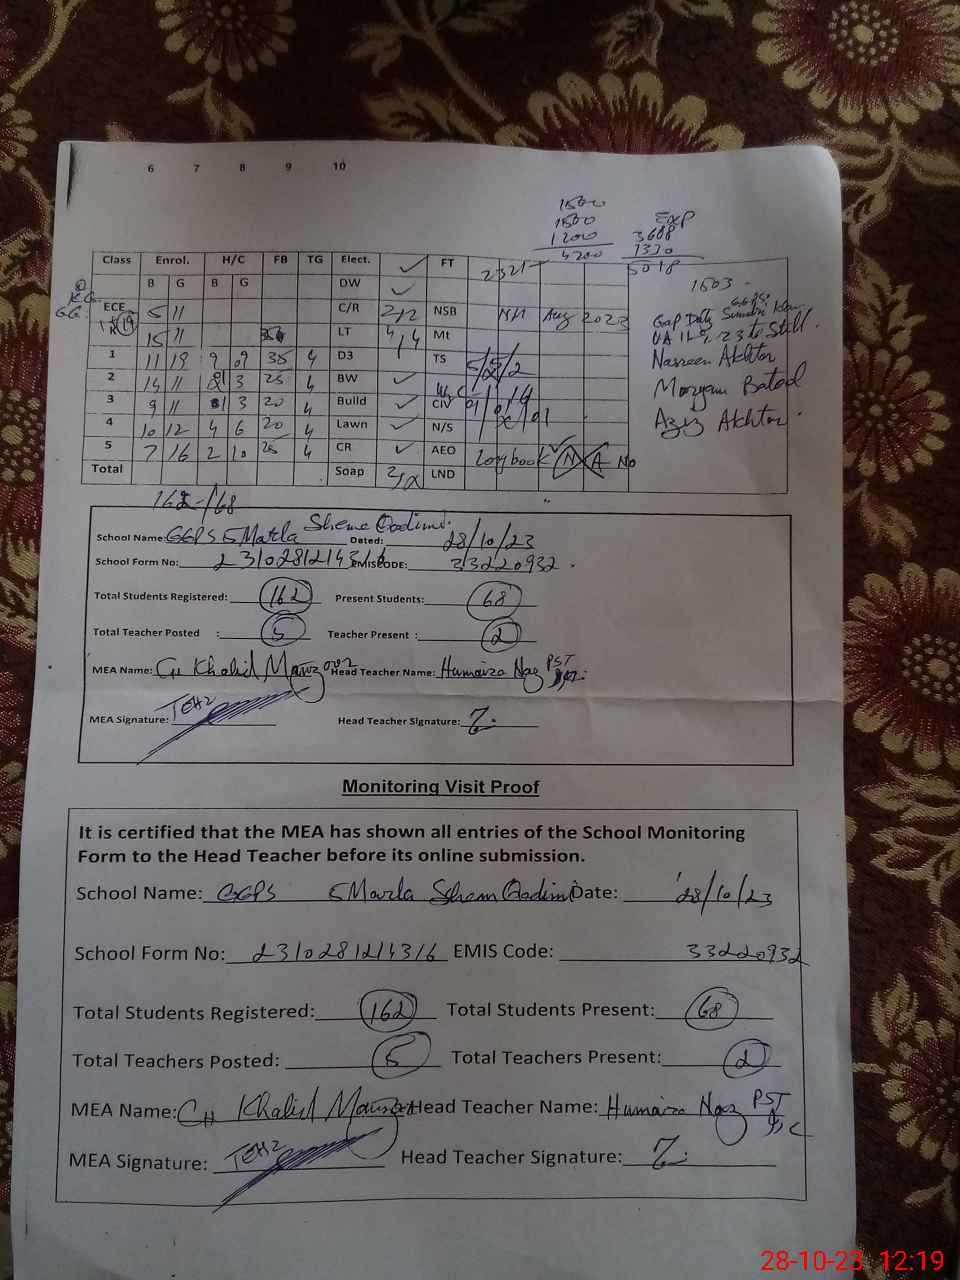 6 7 8 9 10
1500
1500
1200
4200
Exp
3688
1330
5018
Class Enrol. H/C FB TG Elect. ✓ FT 2321
B G B G DW ✓
ECE 5 11 C/R 2/2 NSB N/A Aug 2023
15 11 LT 4/4 Mt
1 11 19 9 09 35 4 D3 TS
2 14 11 8 3 25 4 BW ✓
3 9 11 3 20 4 Build ✓ CIV
4 10 12 4 6 20 4 Lawn ✓ N/S
5 7 16 2 10 25 4 CR ✓ AEO Logbook ✓ N A No
Total Soap LND
1503
Nasreen Akhtar
Maryam Batool
Aziz Akhtar
162-/68
School Name: GGPS 5 Marla Sheme Qadimi Dated: 28/10/23
School Form No: 2310281214316 EMISCODE: 33220932
Total Students Registered: 162 Present Students: 68
Total Teacher Posted : 5 Teacher Present : 2
MEA Name: CH Khalid Manzoor Head Teacher Name: Humaira Naz PST
MEA Signature: Head Teacher Signature:
Monitoring Visit Proof
It is certified that the MEA has shown all entries of the School Monitoring
Form to the Head Teacher before its online submission.
School Name: GGPS 5 Marla Schem Qadimi Date: 28/10/23
School Form No: 2310281214316 EMIS Code: 33220932
Total Students Registered: 162 Total Students Present: 68
Total Teachers Posted: 5 Total Teachers Present: 2
MEA Name: CH Khalid Manzoor Head Teacher Name: Humaira Naz PST
MEA Signature: Head Teacher Signature:
28-10-23 12:19